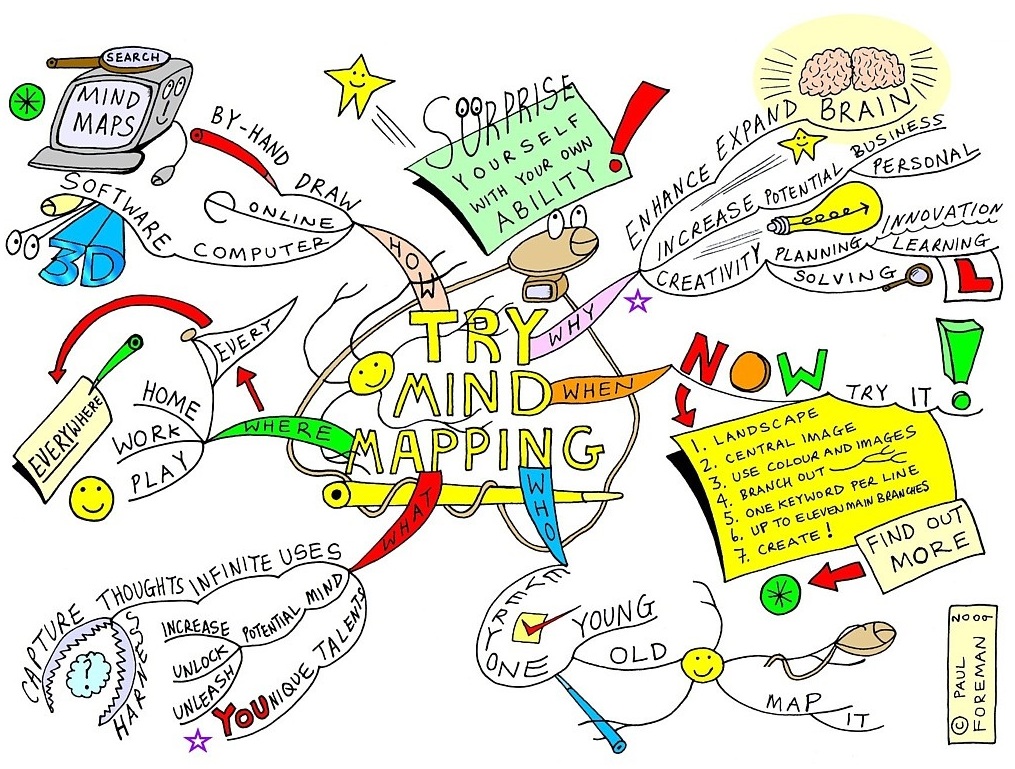 SEARCH
MIND
MAPS
BY-HAND
DRAW
ONLINE
COMPUTER
SOFTWARE
3D
HOW
SURPRISE
YOURSELF
WITH YOUR OWN
ABILITY
!
ENHANCE EXPAND BRAIN
INCREASE POTENTIAL BUSINESS
PERSONAL
CREATIVITY PLANNING INNOVATION
LEARNING
SOLVING
L
WHY
TRY
MIND
MAPPING
WHEN
NOW
TRY IT !
1. LANDSCAPE
2. CENTRAL IMAGE
3. USE COLOUR AND IMAGES
4. BRANCH OUT
5. ONE KEYWORD PER LINE
6. UP TO ELEVEN MAIN BRANCHES
7. CREATE!
FIND OUT
MORE
WHERE
EVERY
HOME
WORK
PLAY
EVERYWHERE
WHAT
INFINITE USES
THOUGHTS
CAPTURE
HARNESS
MIND
POTENTIAL
INCREASE
UNLOCK
UNLEASH
YOUNIQUE TALENTS
WHO
EVERYONE
YOUNG
OLD
MAP IT
© PAUL
FOREMAN